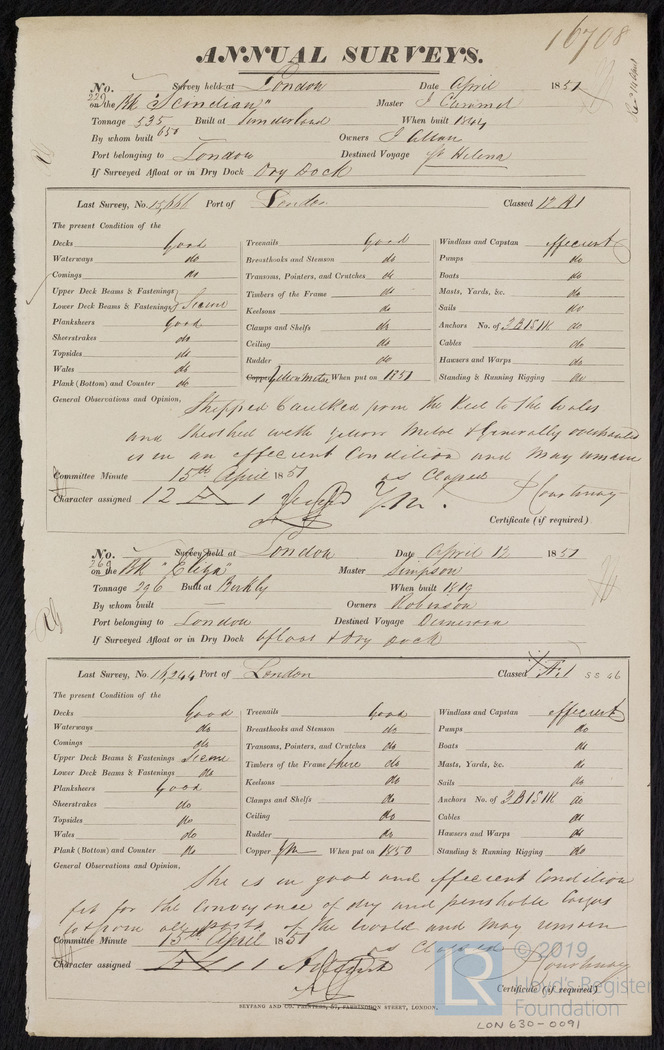 16708
ANNUAL SURVEYS.
No. Survey held at London Date April 1851
229 on the Bk "Scindian" Master J Cammel
Tonnage 535 Built at Sunderland When built 1844
650
By whom built Owners J Allan
Port belonging to London Destined Voyage St Helena
If Surveyed Afloat or in Dry Dock Dry Dock
Last Survey, No. 15,666 Port of London Classed 12 A1
The present Condition of the
Decks Good Treenails Good Windlass and Capstan effecient
Waterways do Breasthooks and Stemson do Pumps do
Comings do Transoms, Pointers, and Crutches do Boats do
Upper Deck Beams & Fastenings Timbers of the Frame do Masts, Yards, &c. do
Lower Deck Beams & Fastenings Secure Keelsons do Sails do
Planksheers Good Clamps and Shelfs do Anchors No. of 3B 1S 1K do
Sheerstrakes do Ceiling do Cables do
Topsides do Rudder do Hawsers and Warps do
Wales do Copper Yellow Metal When put on 1851 Standing & Running Rigging do
Plank (Bottom) and Counter do
General Observations and Opinion, Stripped Caulked from the Keel to the Wales
and Sheathed with Yellow Metal & Generally overhauled
is in an effecient Condition and may remain
as Classed
Committee Minute 15th April 1851
Courtenay
Character assigned 12 A 1 Y.M.
Certificate (if required)
No. Survey held at London Date April 12 1851
269 on the Bk "Eliza" Master Simpson
Tonnage 296 Built at When built 1819
By whom built Owners Robinson
Port belonging to London Destined Voyage Demerara
If Surveyed Afloat or in Dry Dock afloat & Dry Dock
Last Survey, No. 16,244 Port of London Classed Æ1 SS 46
The present Condition of the
Decks Good Treenails Good Windlass and Capstan effecient
Waterways do Breasthooks and Stemson do Pumps do
Comings do Transoms, Pointers, and Crutches do Boats do
Upper Deck Beams & Fastenings Secure Timbers of the Frame where do Masts, Yards, &c. do
Lower Deck Beams & Fastenings do Keelsons do Sails do
Planksheers Good Clamps and Shelfs do Anchors No. of 3B 1S 1K do
Sheerstrakes do Ceiling do Cables do
Topsides do Rudder do Hawsers and Warps do
Wales do Copper YM When put on 1850 Standing & Running Rigging do
Plank (Bottom) and Counter do
General Observations and Opinion,
She is in good and effecient Condition
fit for the Conveyance of dry and perishable Cargos
to & from all parts of the World and may remain
as Classed
Committee Minute 15th April 1851
Courtenay
Character assigned
Certificate (if required)
SEYFANG AND CO. PRINTERS, 57, FARRINGDON STREET, LONDON.
LR
© 2019
Lloyd's Register
Foundation
LON630-0091